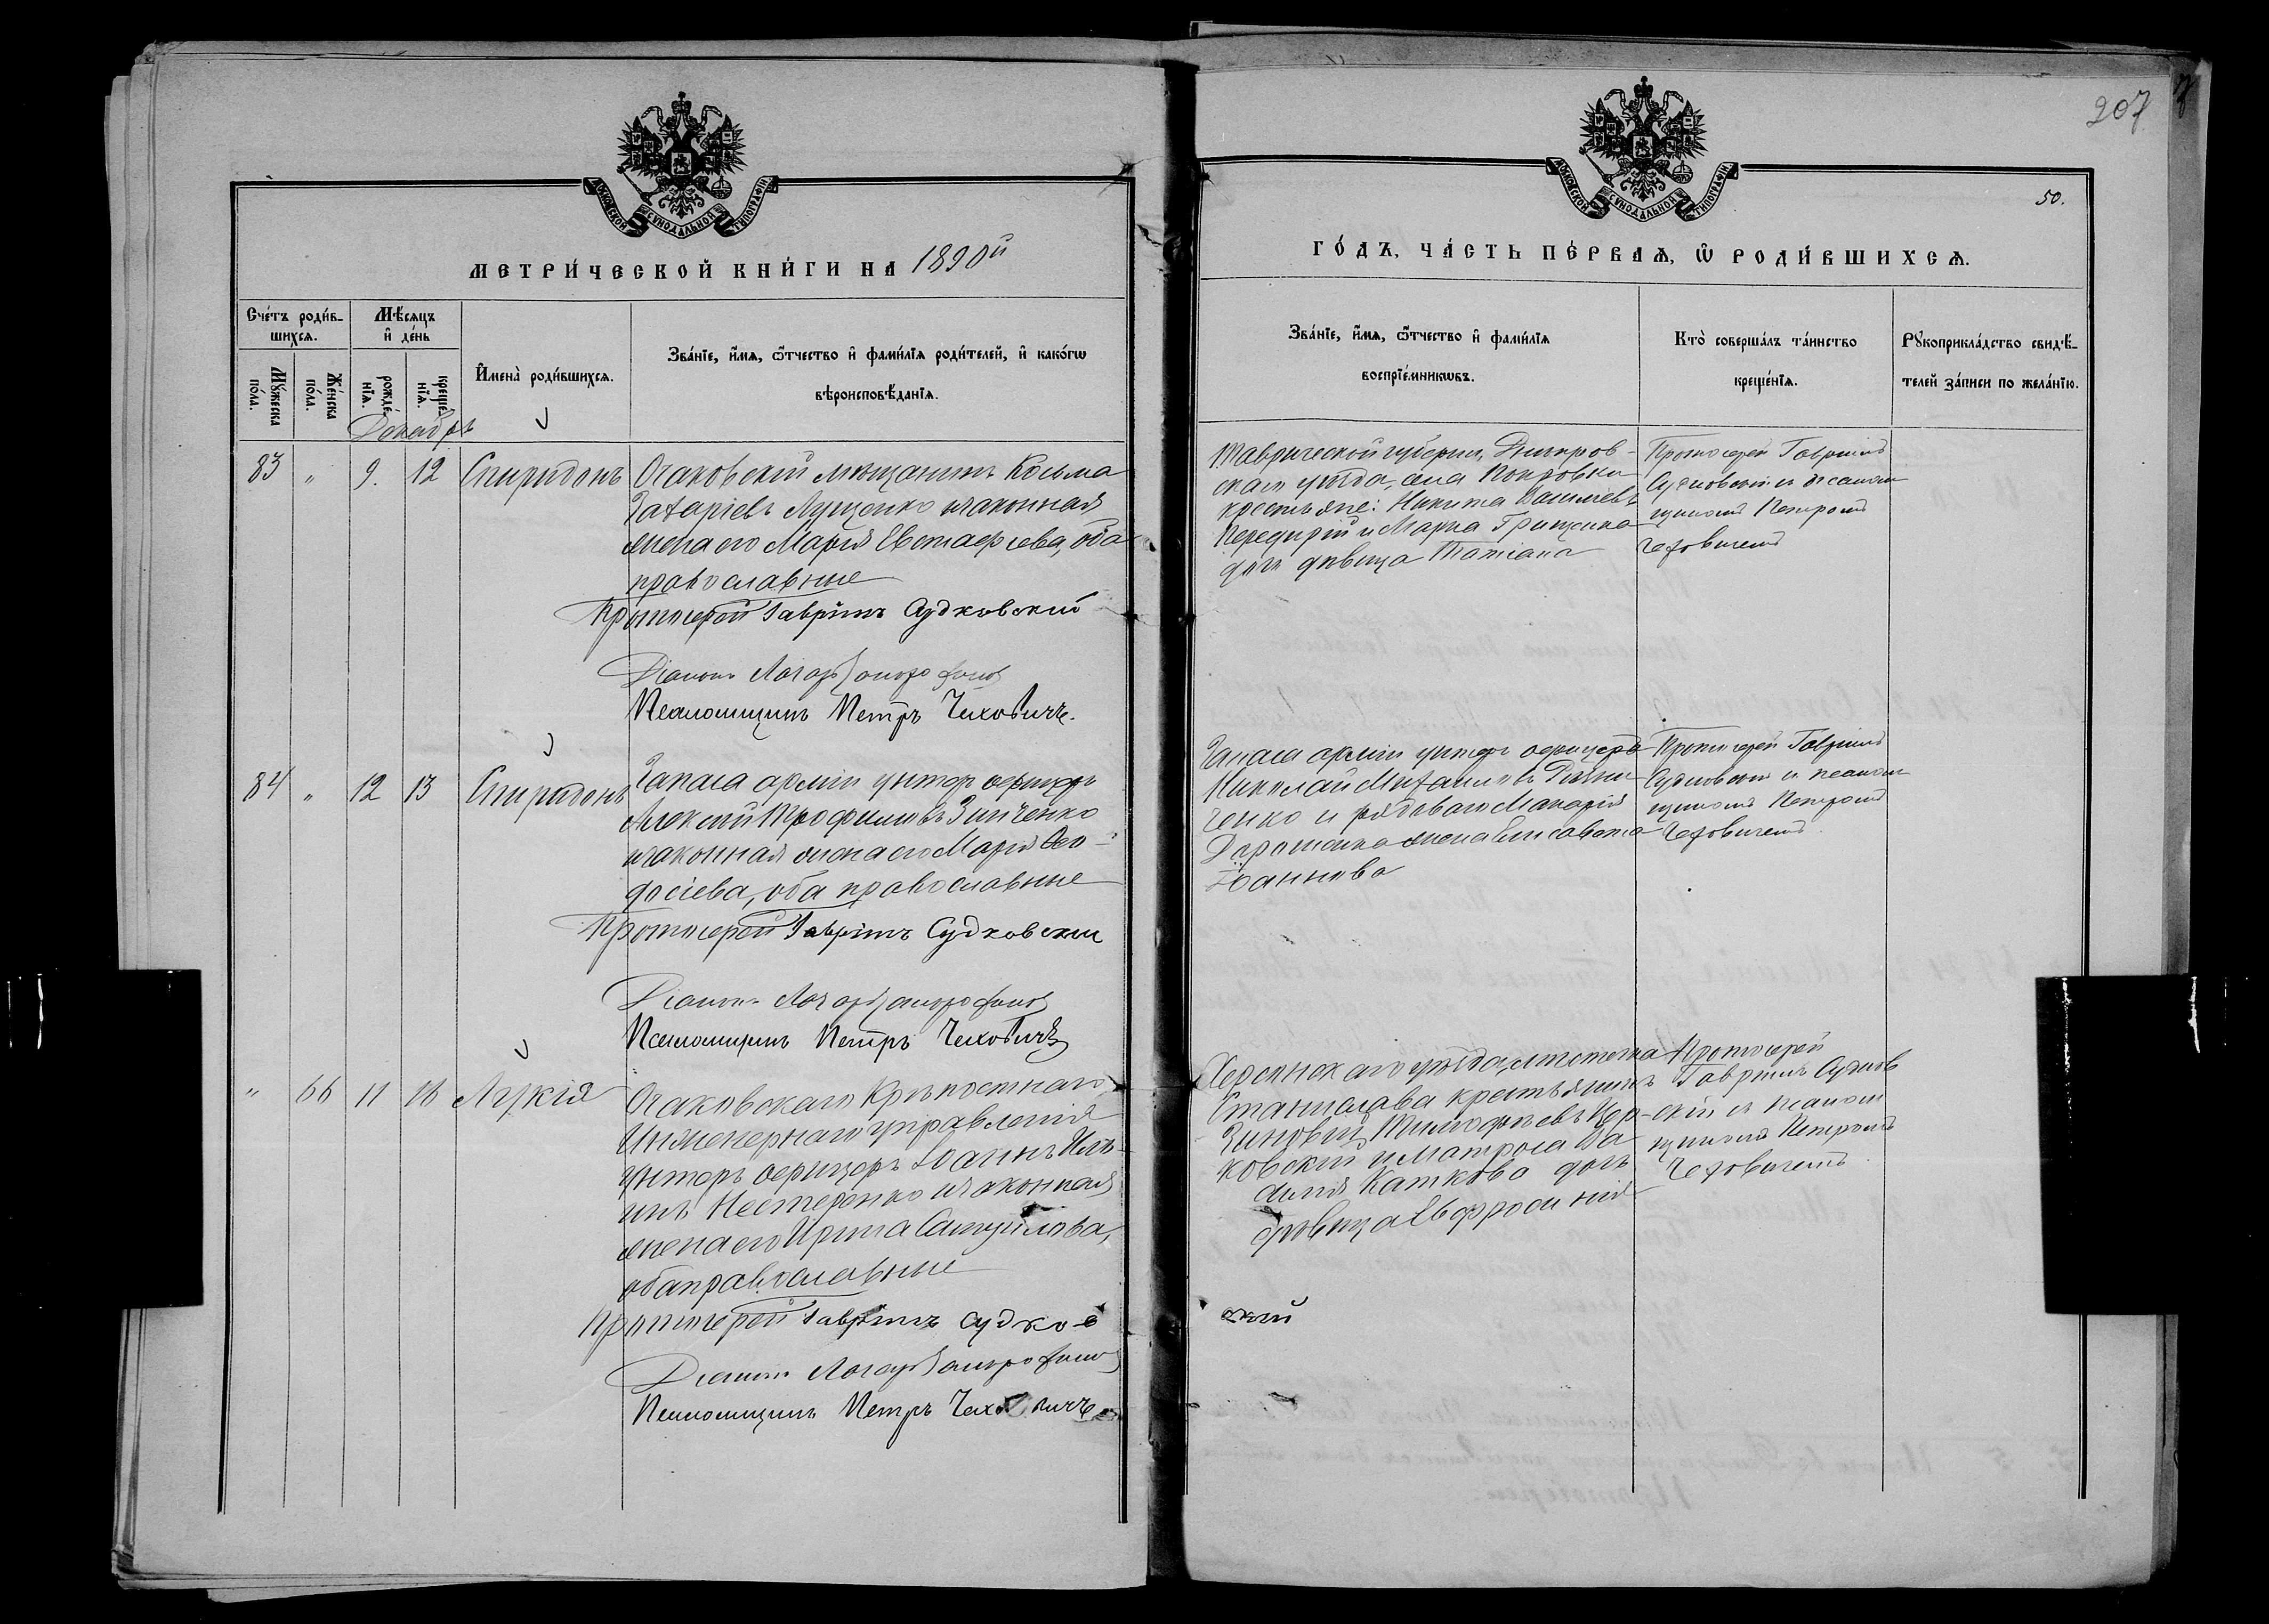 207
50.
МОСКОВСКОЙ СѴНОДАЛЬНОЙ ТИПОГРАФІИ
МЕТРИ́ЧЕСКОЙ КНИ́ГИ НА 1890й
Сче́тъ роди́в-
шихсѧ.
Мѣ́сяцъ
и҆ де́нь
Мꙋ́жеска по́ла.
Же́нска по́ла.
рожде́нїѧ.
креще́нїѧ.
И҆мена̀ роди́вшихсѧ.
Зва́нїе, и҆́мѧ, ѻ҆́тчество и҆ фами́лїѧ роди́телей, и҆ како́гѡ
вѣроисповѣ́данїѧ.
Декабрь
83 " 9. 12 Спиридонъ
Очаковскій мѣщанинъ Косьма
Захаріевъ Лущенко и законная
жена его Марія Евстафіева, оба
православные
Протоіерей Гавріилъ Судковскій
Діаконъ
Псаломщикъ Петръ Чеховичъ.
84 " 12 13 Спиридонъ
Запаса арміи унтеръ офицеръ
Алексій Трофимовъ Зинченко
и законная жена его Марія Ѳео-
досіева, оба православные
Протоіерей Гавріилъ Судковскій
Діаконъ
Псаломщикъ Петръ Чеховичъ
" 66 11 16 Лукія
Очаковскаго Крѣпостнаго
Инженернаго управленія
унтеръ офицеръ Іоаннъ Иль-
инъ Нестеренко и законная
жена его Ирина Самуилова,
оба православные
Протоіерей Гавріилъ Судков
Діаконъ
Псаломщикъ Петръ Чеховичъ.
МОСКОВСКОЙ СѴНОДАЛЬНОЙ ТИПОГРАФІИ
ГО́ДЪ, ЧА́СТЬ ПЕ́РВАѦ, Ѡ҆ РОДИ́ВШИХСѦ.
Зва́нїе, и҆́мѧ, ѻ҆́тчество и҆ фами́лїѧ
воспрїе́мникѡвъ.
Кто̀ соверша́лъ та́инство
креще́нїѧ.
Рꙋкоприкла́дство свидѣ́-
телей за́писи по жела́нїю.
Таврической губерніи, Днѣпров-
скаго уѣзда, села Покровки
крестьяне: Никита Васильевъ
и Марка Грищенка
дочь дѣвица Татіана
Протоіерей Гавріилъ
Судковскій и псалом
щикомъ Петромъ
Чеховичемъ
Запаса арміи унтеръ офицеръ
Николай Михаиловъ
ченко и рядоваго Макарія
Дорошенка жена Елисавета
Іоаннова
Протоіерей Гавріилъ
Судковскій и псалом
щикомъ Петромъ
Чеховичемъ.
Херсонскаго уѣзда, мѣстечка
Станислава крестьянинъ
Зиновій Тимоѳеевъ
ковскій и матроса Ва
силія Каткова дочь
дѣвица Евфросинія
Протоіерей
Гавріилъ Судков
скій и псалом
щикомъ Петромъ
Чеховичемъ.
скій